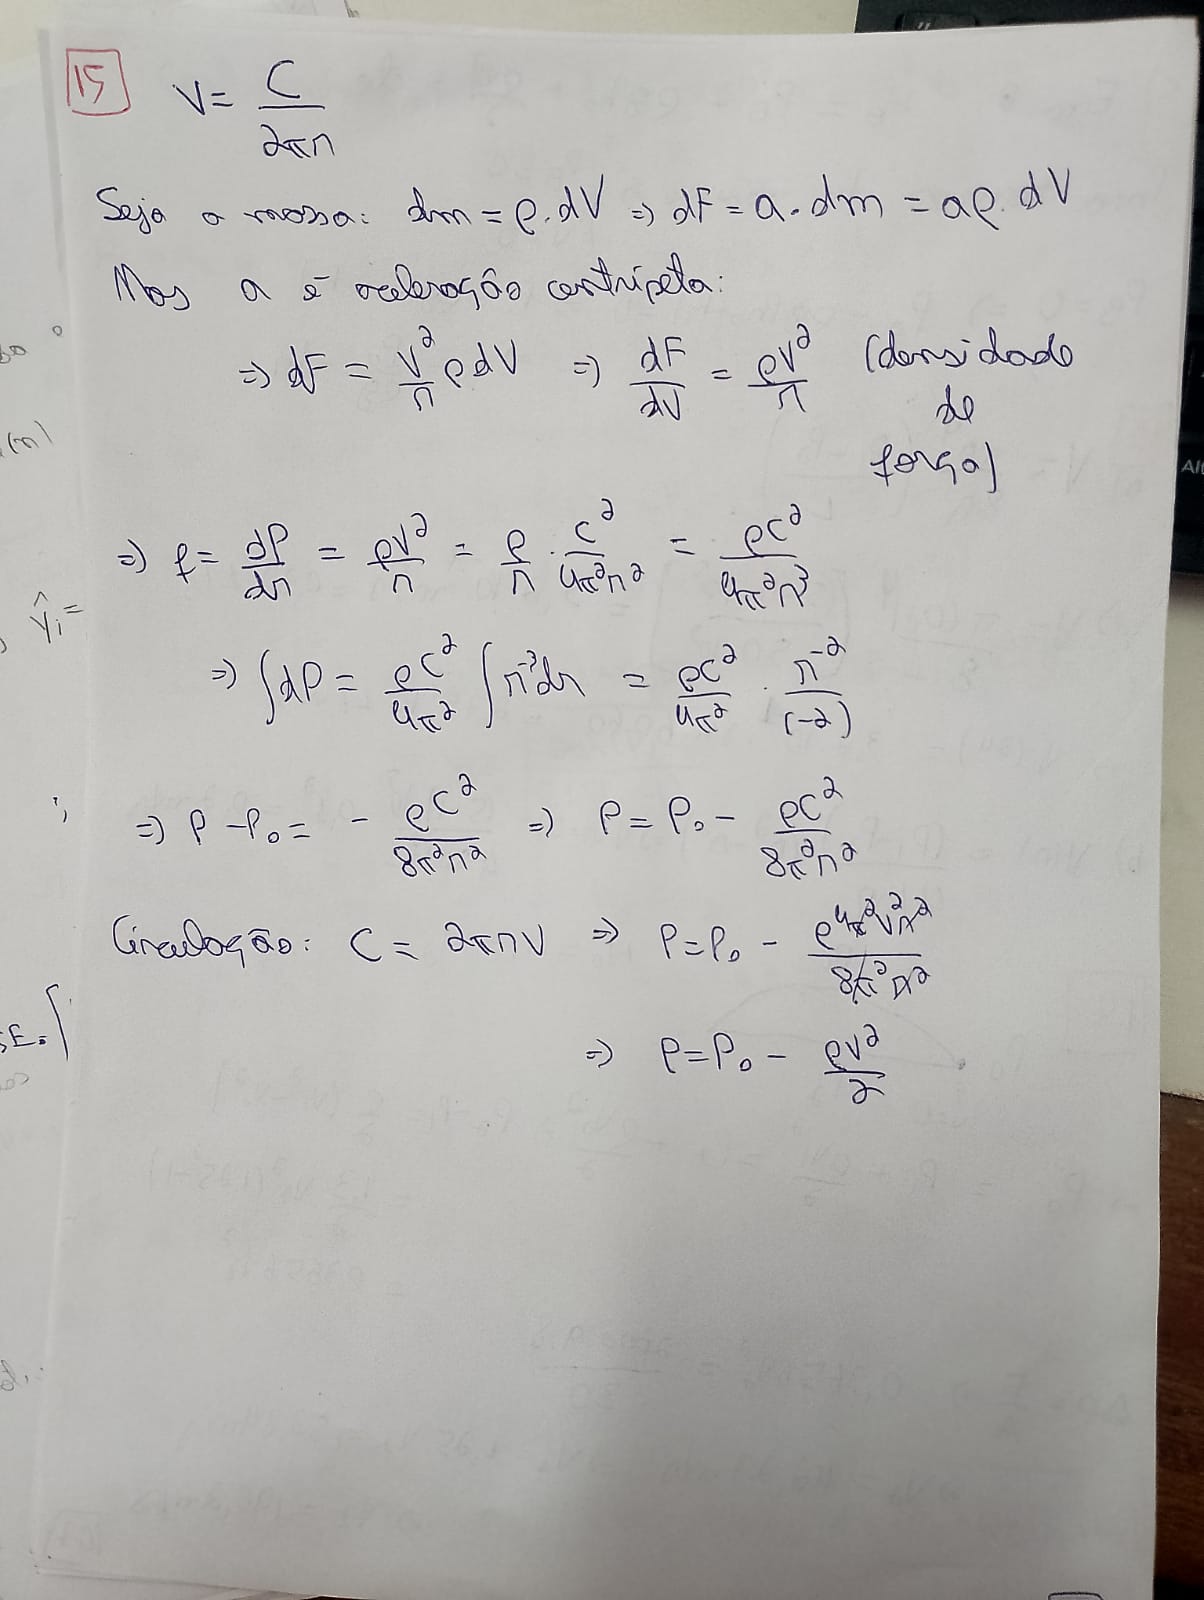 15
V = C / 2πr
Seja a massa: dm = ρ.dV ⇒ dF = a.dm = aρ.dV
Mas a é aceleração centrípeta:
⇒ dF = V²/r ρdV ⇒ dF/dV = ρV²/r (densidade
de
força)
⇒ f = dP/dr = ρV²/r = ρ/r . C²/4π²r² = ρC²/4π²r³
ŷi =
⇒ ∫dP = ρC²/4π² ∫r⁻³dr = ρC²/4π² . r⁻²/(-2)
⇒ P - P₀ = - ρC²/8π²r² ⇒ P = P₀ - ρC²/8π²r²
Circulação: C = 2πrV ⇒ P = P₀ - ρ4π²V²r²/8π²r²
⇒ P = P₀ - ρV²/2